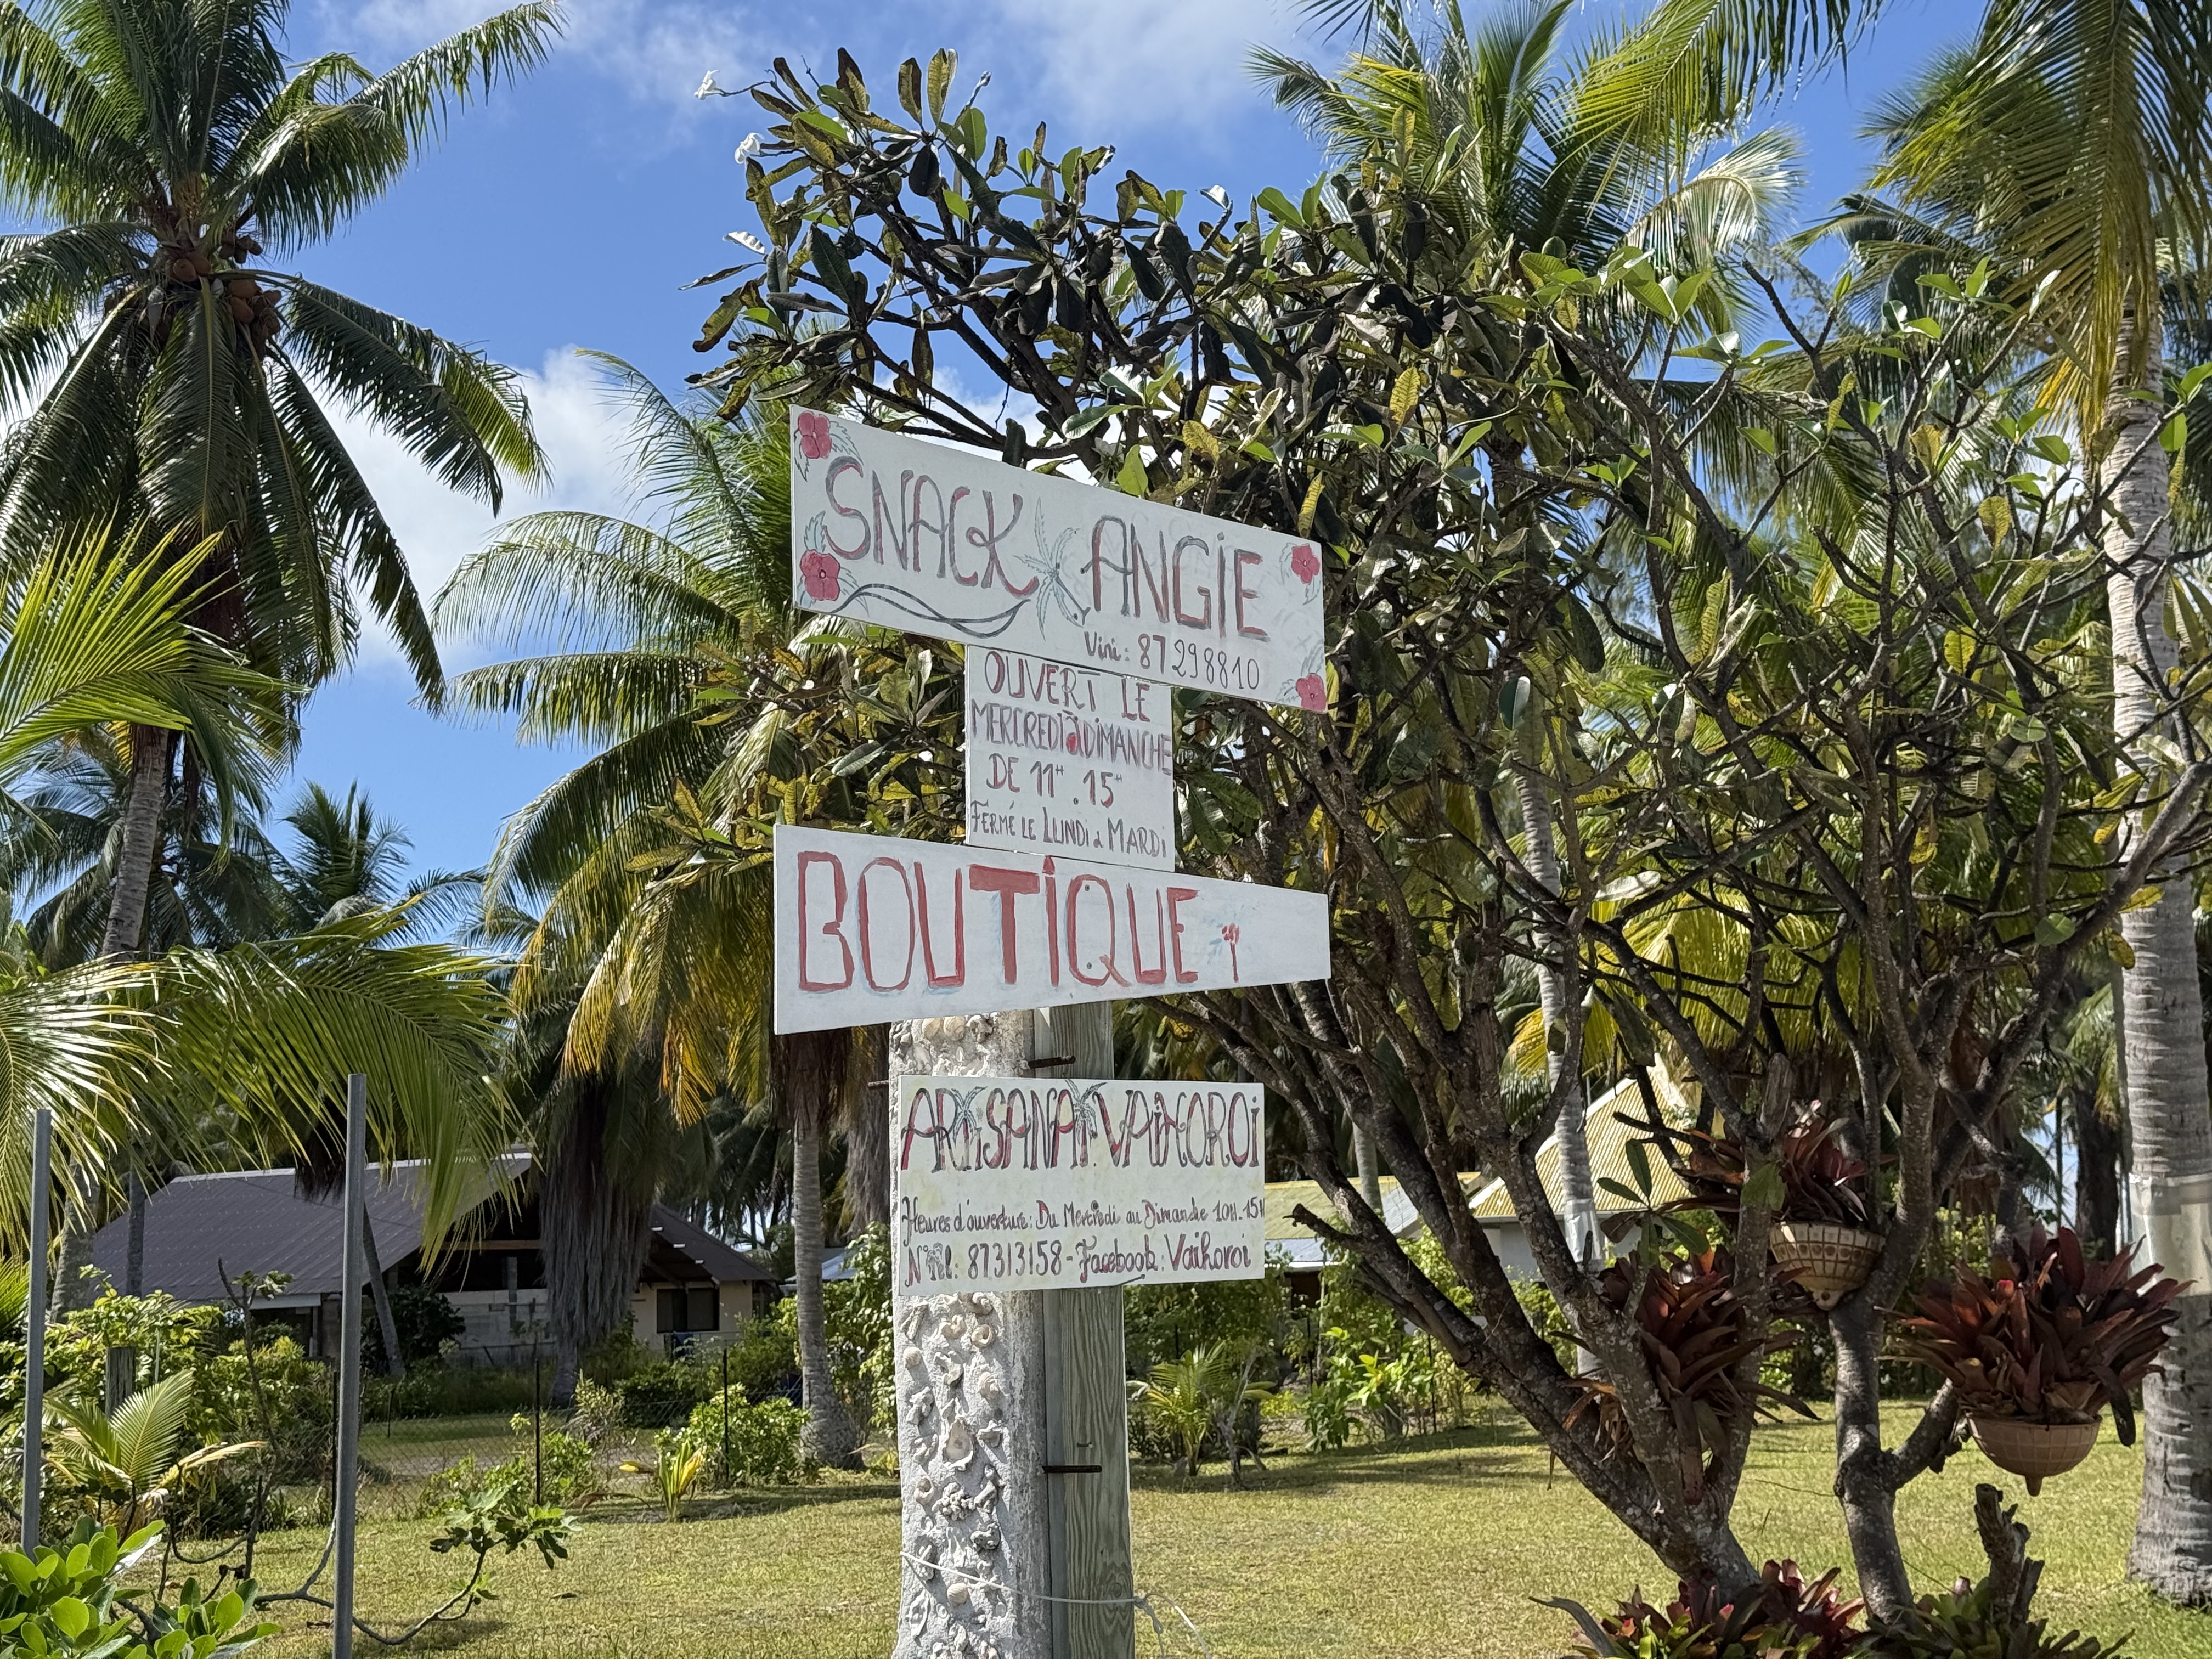 SNACK ANGiE
Vini: 87298810
OUVERT LE
MERCREDi à DiMANCHE
DE 11H. 15H
FERMÉ LE LUNDi à MARDi
BOUTiQUE
ARTiSANAT VAiHOROi
Heures d'ouverture: Du Mercredi au Dimanche 10H-15H
N° Tel: 87313158 - Facebook: Vaihoroi